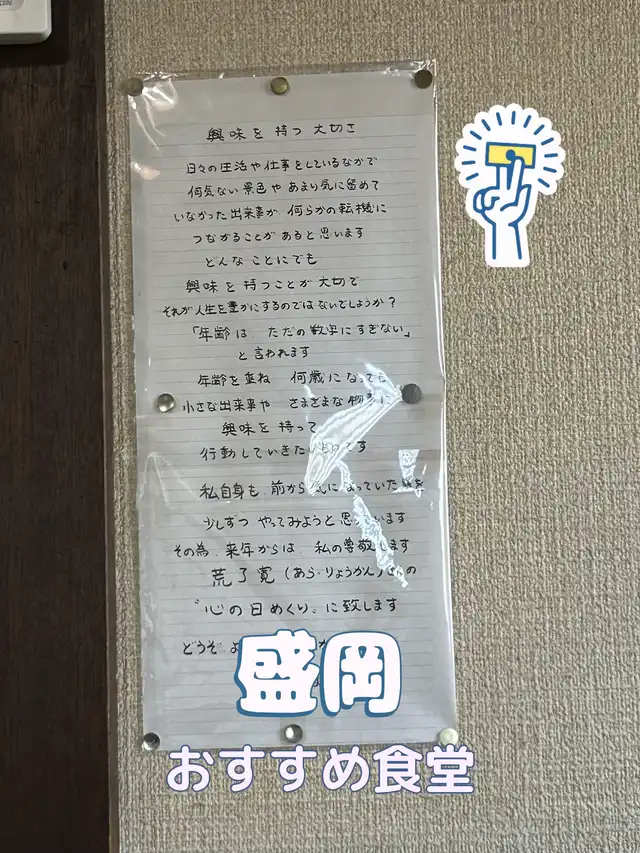 興味を持つ大切さ
日々の生活や仕事をしているなかで
何気ない景色や あまり気に留めて
いなかった出来事が 何らかの転機に
つながることが あると思います
どんな ことにでも
興味を 持つことが 大切で
それが人生を豊かにするのではないでしょうか?
「年齢は ただの数字にすぎない」
と言われます
年齢を重ね 何歳になっても
小さな出来事や さまざまな物事に
興味を 持って
行動していきたいものです
私自身も 前から気になっていた
少しずつ やってみようと思います
その為、来年からは 私の尊敬します
荒了寛(あら・りょうかん)さんの
“心の日めくり”に致します
どうぞ
盛岡
おすすめ食堂